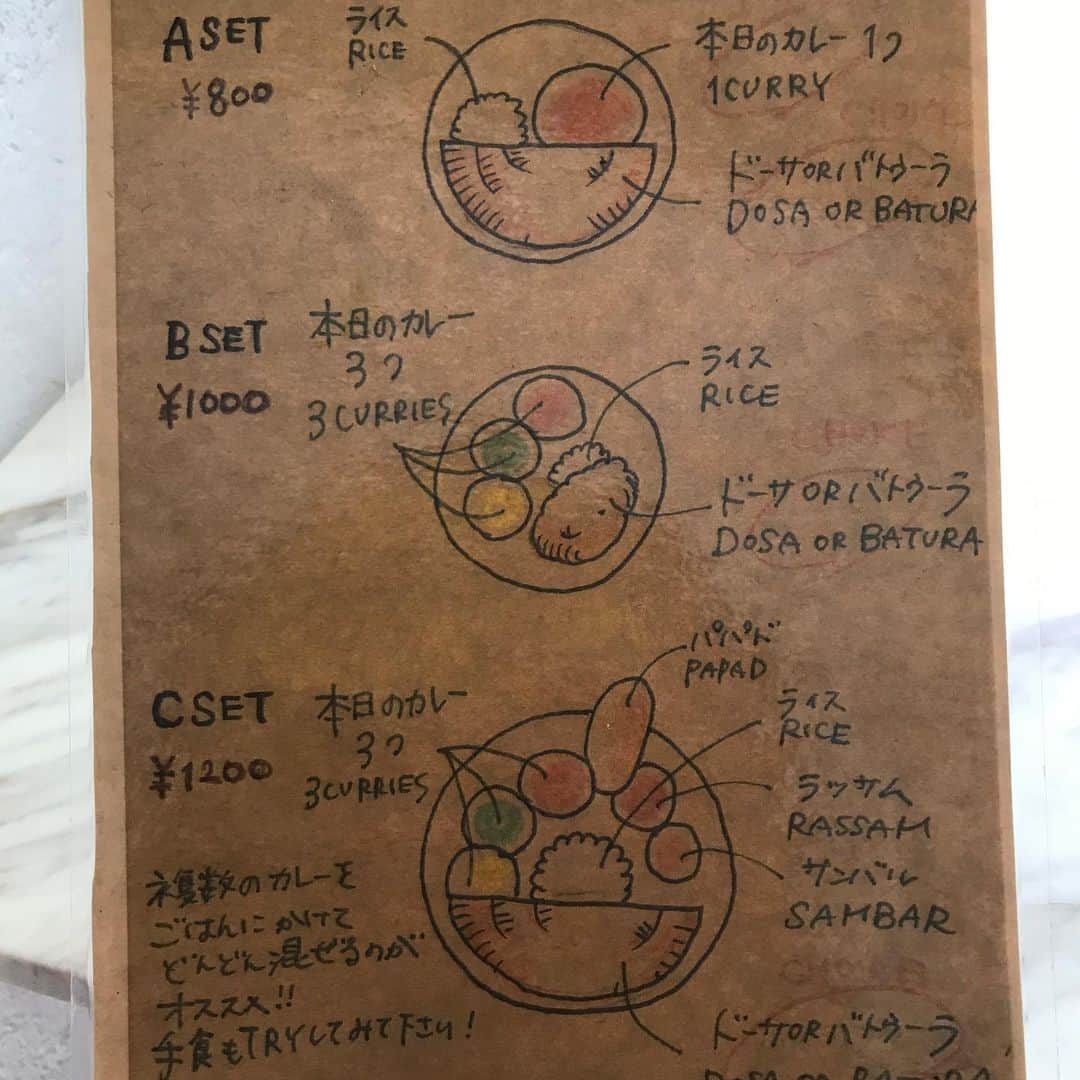 A SET
¥800
ライス
RICE
本日のカレー 1つ
1 CURRY
ドーサ OR バトゥーラ
DOSA OR BATURA
B SET
¥1000
本日のカレー
3つ
3 CURRIES
ライス
RICE
ドーサ OR バトゥーラ
DOSA OR BATURA
C SET
¥1200
本日のカレー
3つ
3 CURRIES
パパド
PAPAD
ライス
RICE
ラッサム
RASSAM
サンバル
SAMBAR
複数のカレーを
ごはんにかけて
どんどん混ぜるのが
オススメ!!
手食もTRYしてみて下さい!
ドーサ OR バトゥーラ
DOSA OR BATURA